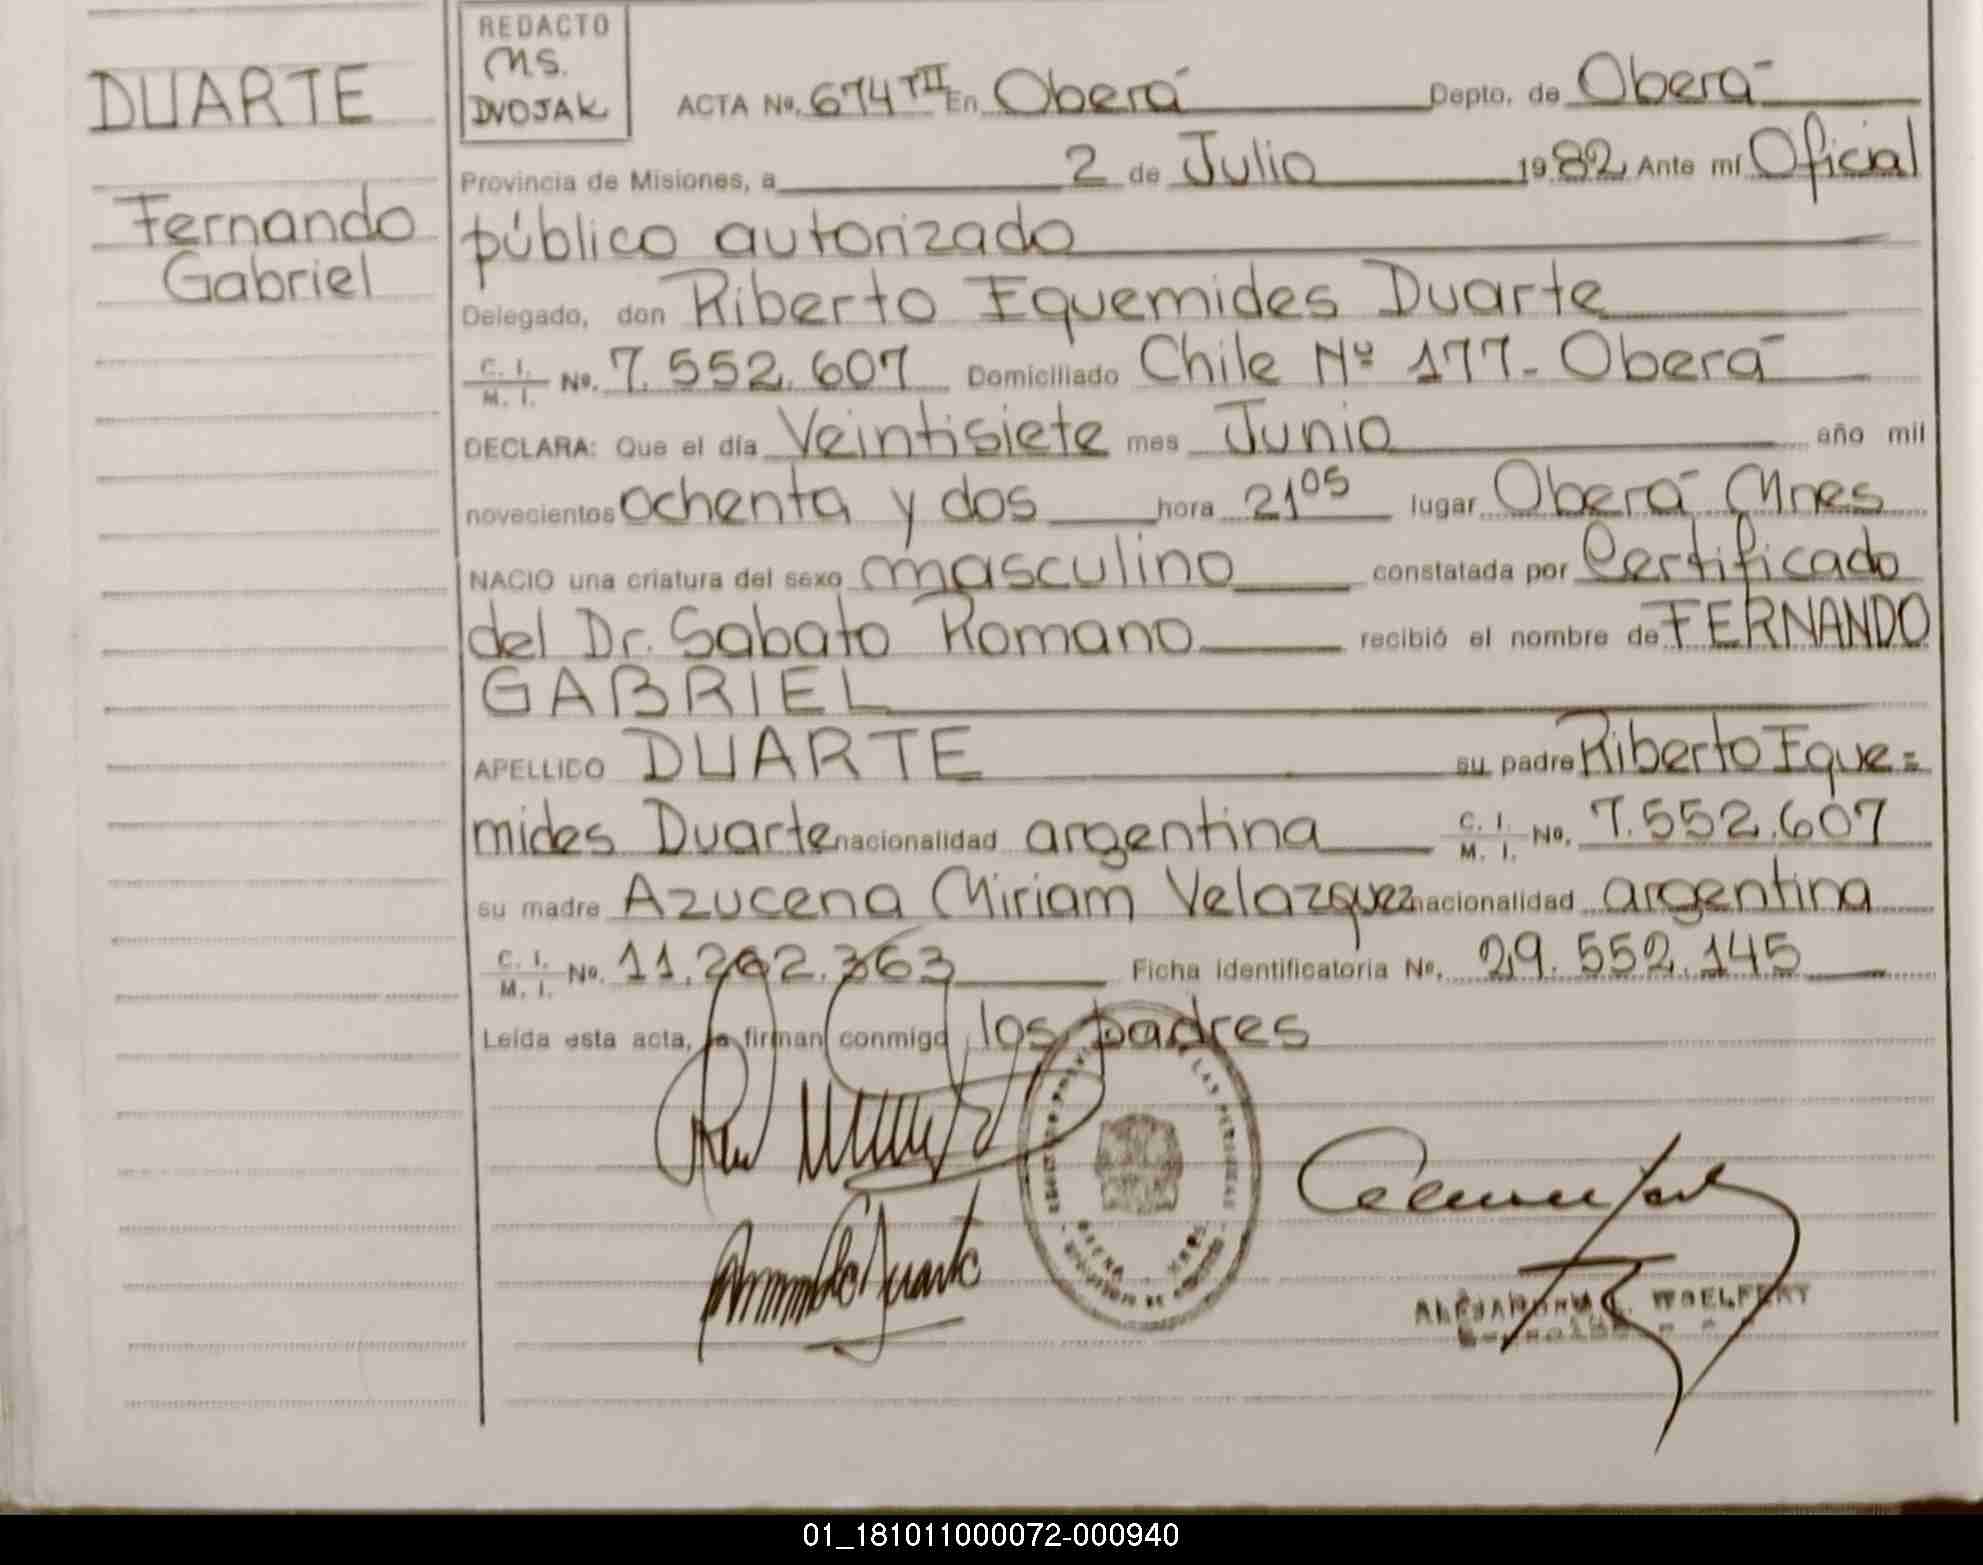 DUARTE
Fernando
Gabriel
REDACTO
MS.
DVOJAK
ACTA No. 674 TII En Oberá Depto. de Oberá
Provincia de Misiones, a 2 de Julio 1982 Ante mí Oficial
público autorizado
Delegado, don Riberto Equemides Duarte
C. I. / M. I. No. 7.552.607 Domiciliado Chile Nº 177- Oberá
DECLARA: Que el día Veintisiete mes Junio año mil
novecientos ochenta y dos hora 21 05 lugar Oberá Mnes
NACIO una criatura del sexo masculino constatada por Certificado
del Dr. Sabato Romano recibió el nombre de FERNANDO
GABRIEL
APELLIDO DUARTE su padre Riberto Eque=
mides Duarte nacionalidad argentina C. I. / M. I. No. 7.552.607
su madre Azucena Miriam Velazquez nacionalidad argentina
C. I. / M. I. No. 11.262.363 Ficha identificatoria No. 29.552.145
Leída esta acta, la firman conmigo los padres
01_181011000072-000940